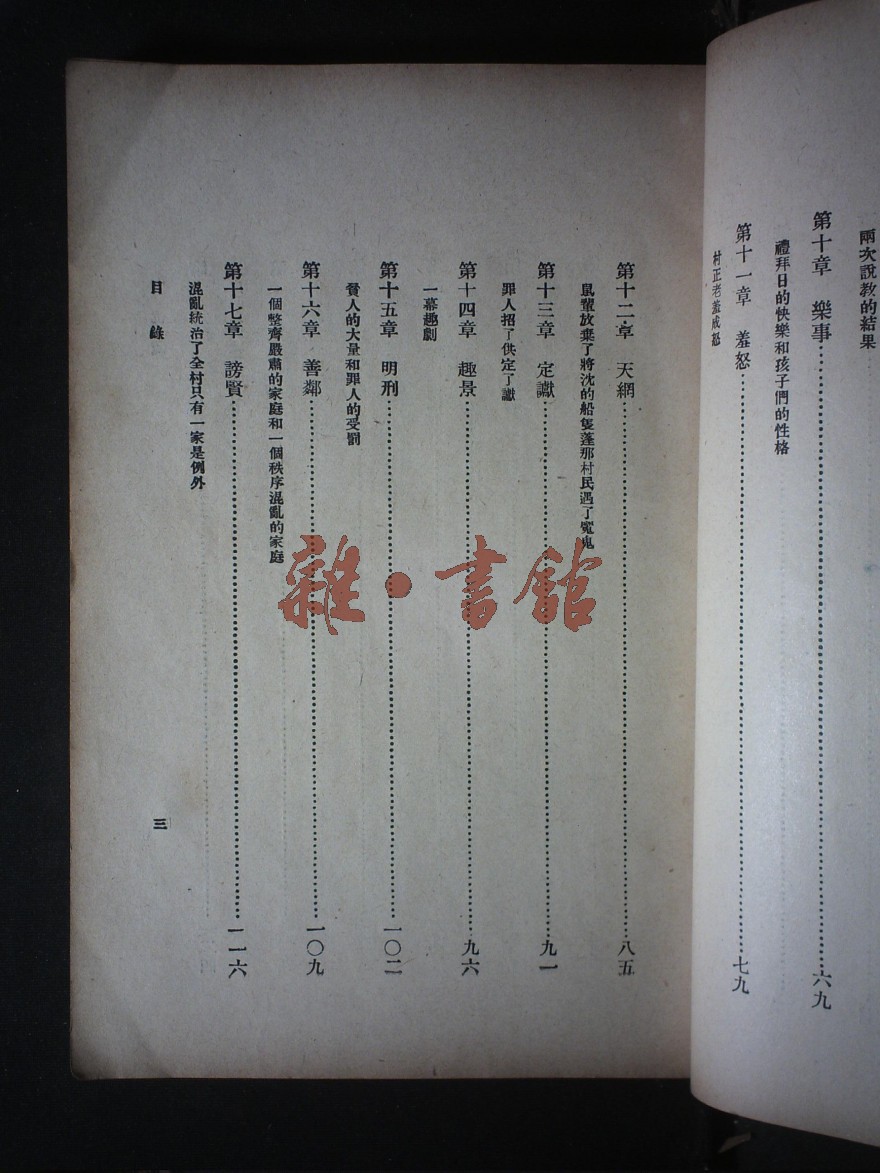 兩次說教的結果
第十章　樂事……六九
禮拜日的快樂和孩子們的性格
第十一章　羞怒……七九
村正老羞成怒
第十二章　天網……八五
鼠輩放棄了將沈的船隻蓬那村民遇了魔鬼
第十三章　定讞……九一
罪人招了供定了讞
第十四章　趣景……九六
一幕趣劇
第十五章　明刑……一〇二
貧人的大量和罪人的受罰
第十六章　善鄰……一〇九
一個整齊嚴肅的家庭和一個秩序混亂的家庭
第十七章　謗賢……一一六
混亂統治了全村只有一家是例外
目錄
三
雜·書館